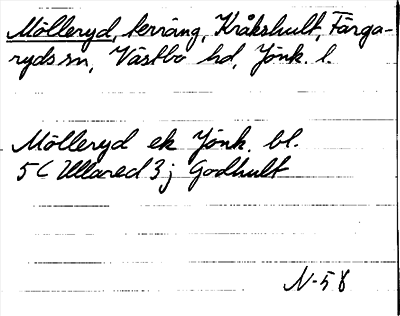 Mölleryd, terräng, Kråkshult, Färga-
ryds sn, Västbo hd, Jönk. l.
Mölleryd ek Jönk. bl.
5 C Ullared 3 j Godhult
N-58